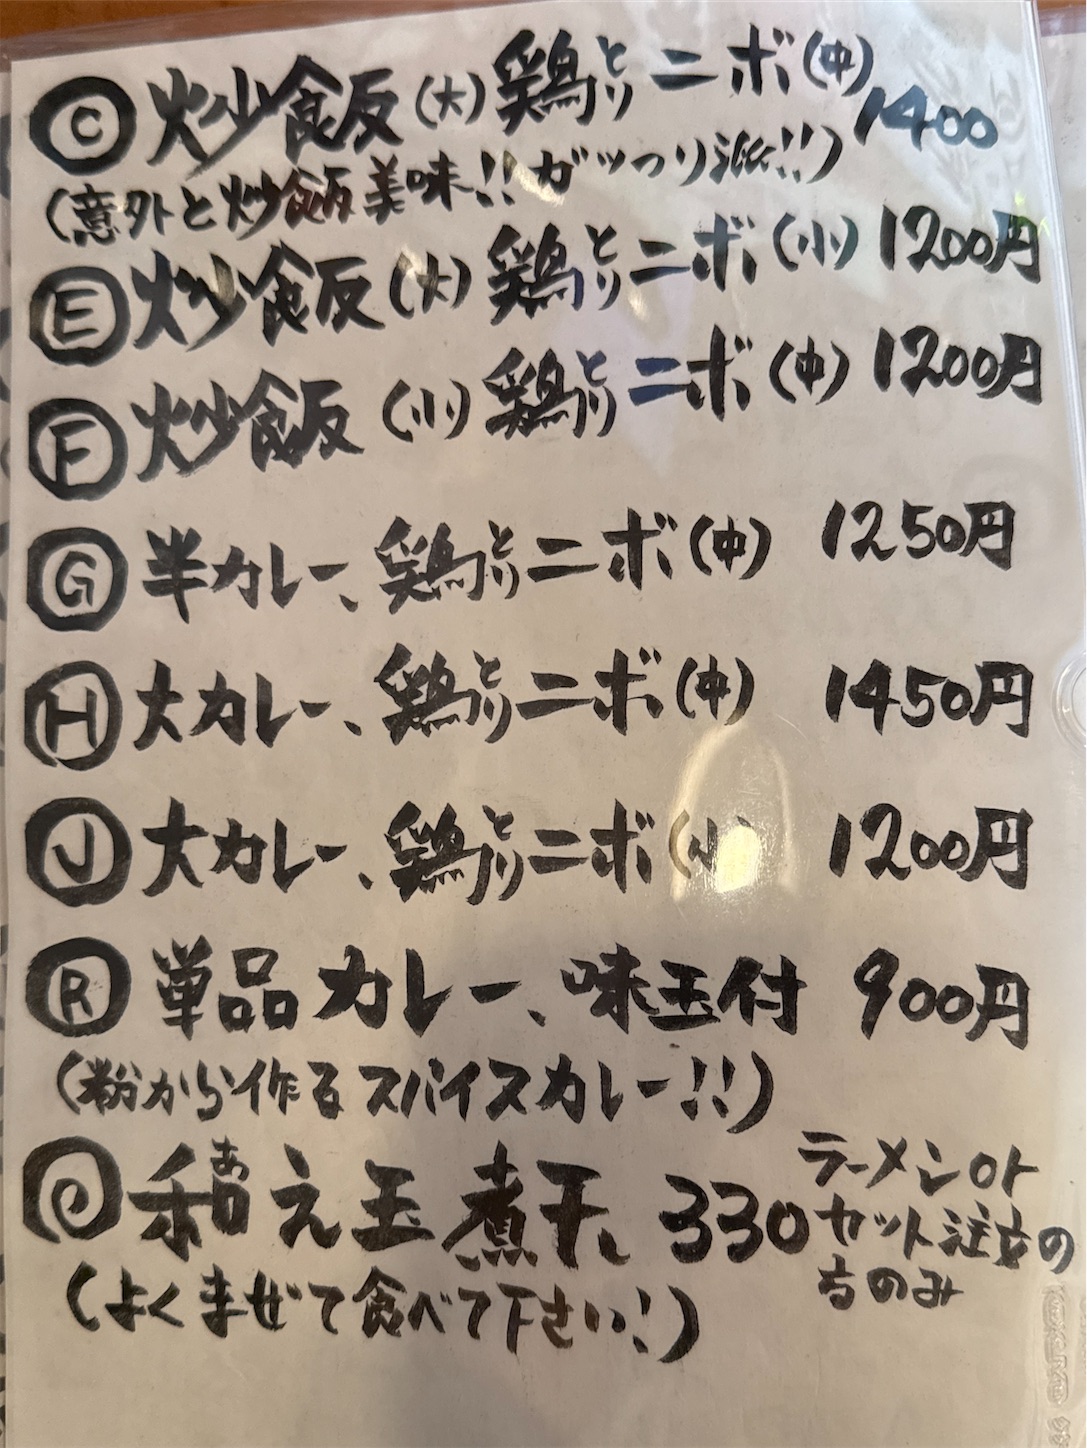 Ⓒ炒飯(大)鶏とりニボ(中)1400
(意外と炒飯美味!!ガッつり派!!)
Ⓔ炒飯(大)鶏とりニボ(小)1200円
Ⓕ炒飯(小)鶏とりニボ(中)1200円
Ⓖ半カレー、鶏とりニボ(中) 1250円
Ⓗ大カレー、鶏とりニボ(中) 1450円
Ⓙ大カレー、鶏とりニボ(小 1200円
Ⓡ単品カレー、味玉付 900円
(粉から作るスパイスカレー!!)
和あえ玉煮干し 330
ラーメンor
セット注文の
方のみ
(よくまぜて食べて下さい!)